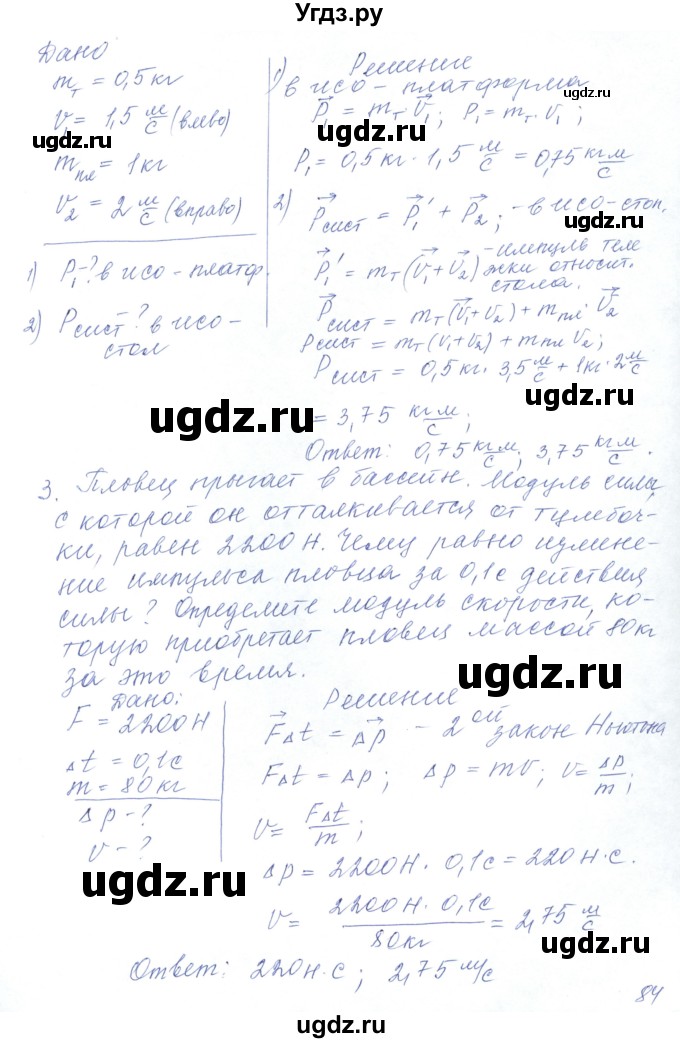 Угдз.ру
Дано
mт = 0,5 кг
v₁ = 1,5 м/с (влево)
ugdz.ru
mпл = 1 кг
v₂ = 2 м/с (вправо)
1) P₁ - ? в исо - платф.
2) Pсист ? в исо -
стол
1) Решение
в исо - платформа
P⃗₁ = mт · v⃗₁; P₁ = mт · v₁;
ugdz.ru
P₁ = 0,5 кг · 1,5 м/с = 0,75 кг м/с
2) P⃗сист = P⃗₁' + P⃗₂; - в исо - стол,
ugdz.ru
P⃗₁' = mт (v⃗₁ + v⃗₂) - импульс теле
жки относит.
стола.
P⃗сист = mт (v⃗₁ + v₂) + mпл · v⃗₂
Pсист = mт (v₁ + v₂) + mпл v₂;
Pсист = 0,5 кг · 3,5 м/с + 1 кг · 2 м/с
ugdz.ru
= 3,75 кг м/с;
Ответ: 0,75 кг м/с; 3,75 кг м/с.
3. Пловец прыгает в бассейн. Модуль силы,
с которой он отталкивается от тумбоч-
ки, равен 2200 Н. Чему равно измене-
ние импульса пловца за 0,1 с действия
силы? Определите модуль скорости, ко-
торую приобретает пловец массой 80 кг
за это время.
ugdz.ru
Дано:
F = 2200 Н
Δt = 0,1 с
m = 80 кг
Δp - ?
v - ?
ugdz.ru
Решение
F⃗Δt = Δp⃗ - 2ой закон Ньютона
FΔt = Δp; Δp = mv; v = Δp/m;
v = FΔt/m;
Δp = 2200 Н · 0,1 с = 220 Н · с.
ugdz.ru
v = 2200 Н · 0,1 с / 80 кг = 2,75 м/с
Ответ: 220 Н · с; 2,75 м/с
84
ugdz.ru